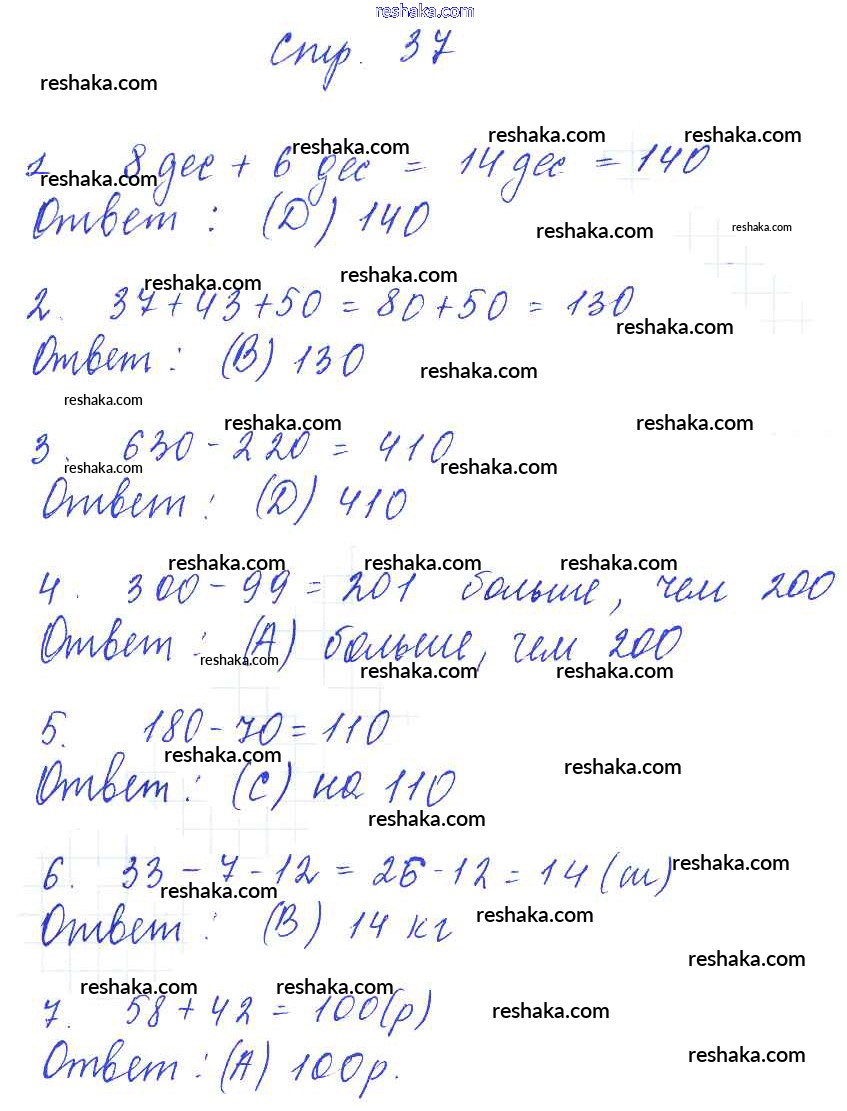 reshaka.com
Стр. 37
reshaka.com
reshaka.com reshaka.com reshaka.com
1. 8 дес + 6 дес = 14 дес = 140
reshaka.com
Ответ : (D) 140
reshaka.com reshaka.com
reshaka.com reshaka.com
2. 37+43+50 = 80+50 = 130
reshaka.com
Ответ : (В) 130
reshaka.com
reshaka.com
reshaka.com reshaka.com
3. 630 - 220 = 410
reshaka.com reshaka.com
Ответ : (D) 410
reshaka.com reshaka.com reshaka.com
4. 300 - 99 = 201 больше, чем 200
Ответ : (А) больше, чем 200
reshaka.com reshaka.com reshaka.com
5. 180 - 70 = 110
reshaka.com reshaka.com
Ответ : (С) на 110
reshaka.com
6. 33 - 7 - 12 = 26 - 12 = 14 (м)
reshaka.com reshaka.com
Ответ : (В) 14 кг
reshaka.com
reshaka.com
reshaka.com reshaka.com
7. 58 + 42 = 100(р)
reshaka.com
Ответ : (А) 100р.
reshaka.com